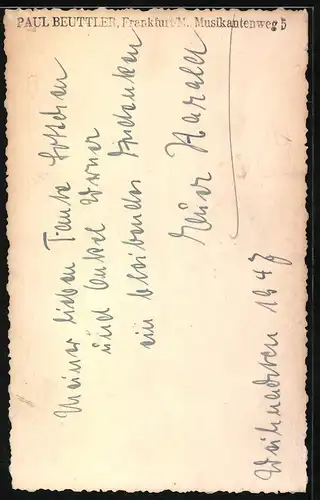 PAUL BEUTTLER, Frankfurt/M. Musikantenweg 5
Meiner lieben Tante Lottchen
und Onkel Werner
ein bleibendes Andenken
Euer Harald
Weihnachten 1947